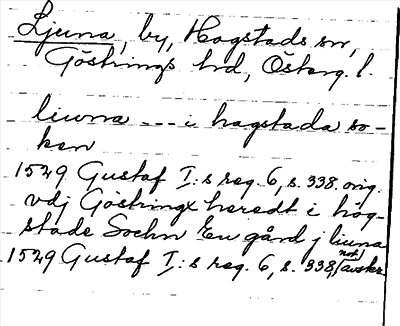 Ljuna, by, Hogstads sn,
Göstrings hd, Österg. l.
liuna --- i hagstada so-
ken
1529 Gustaf I:s reg. 6, s. 338. orig.
vdj Göstringx heredt i hög-
stade Sochn En gård j liuna
1529 Gustaf I:s reg. 6, s. 338, not, avskr.